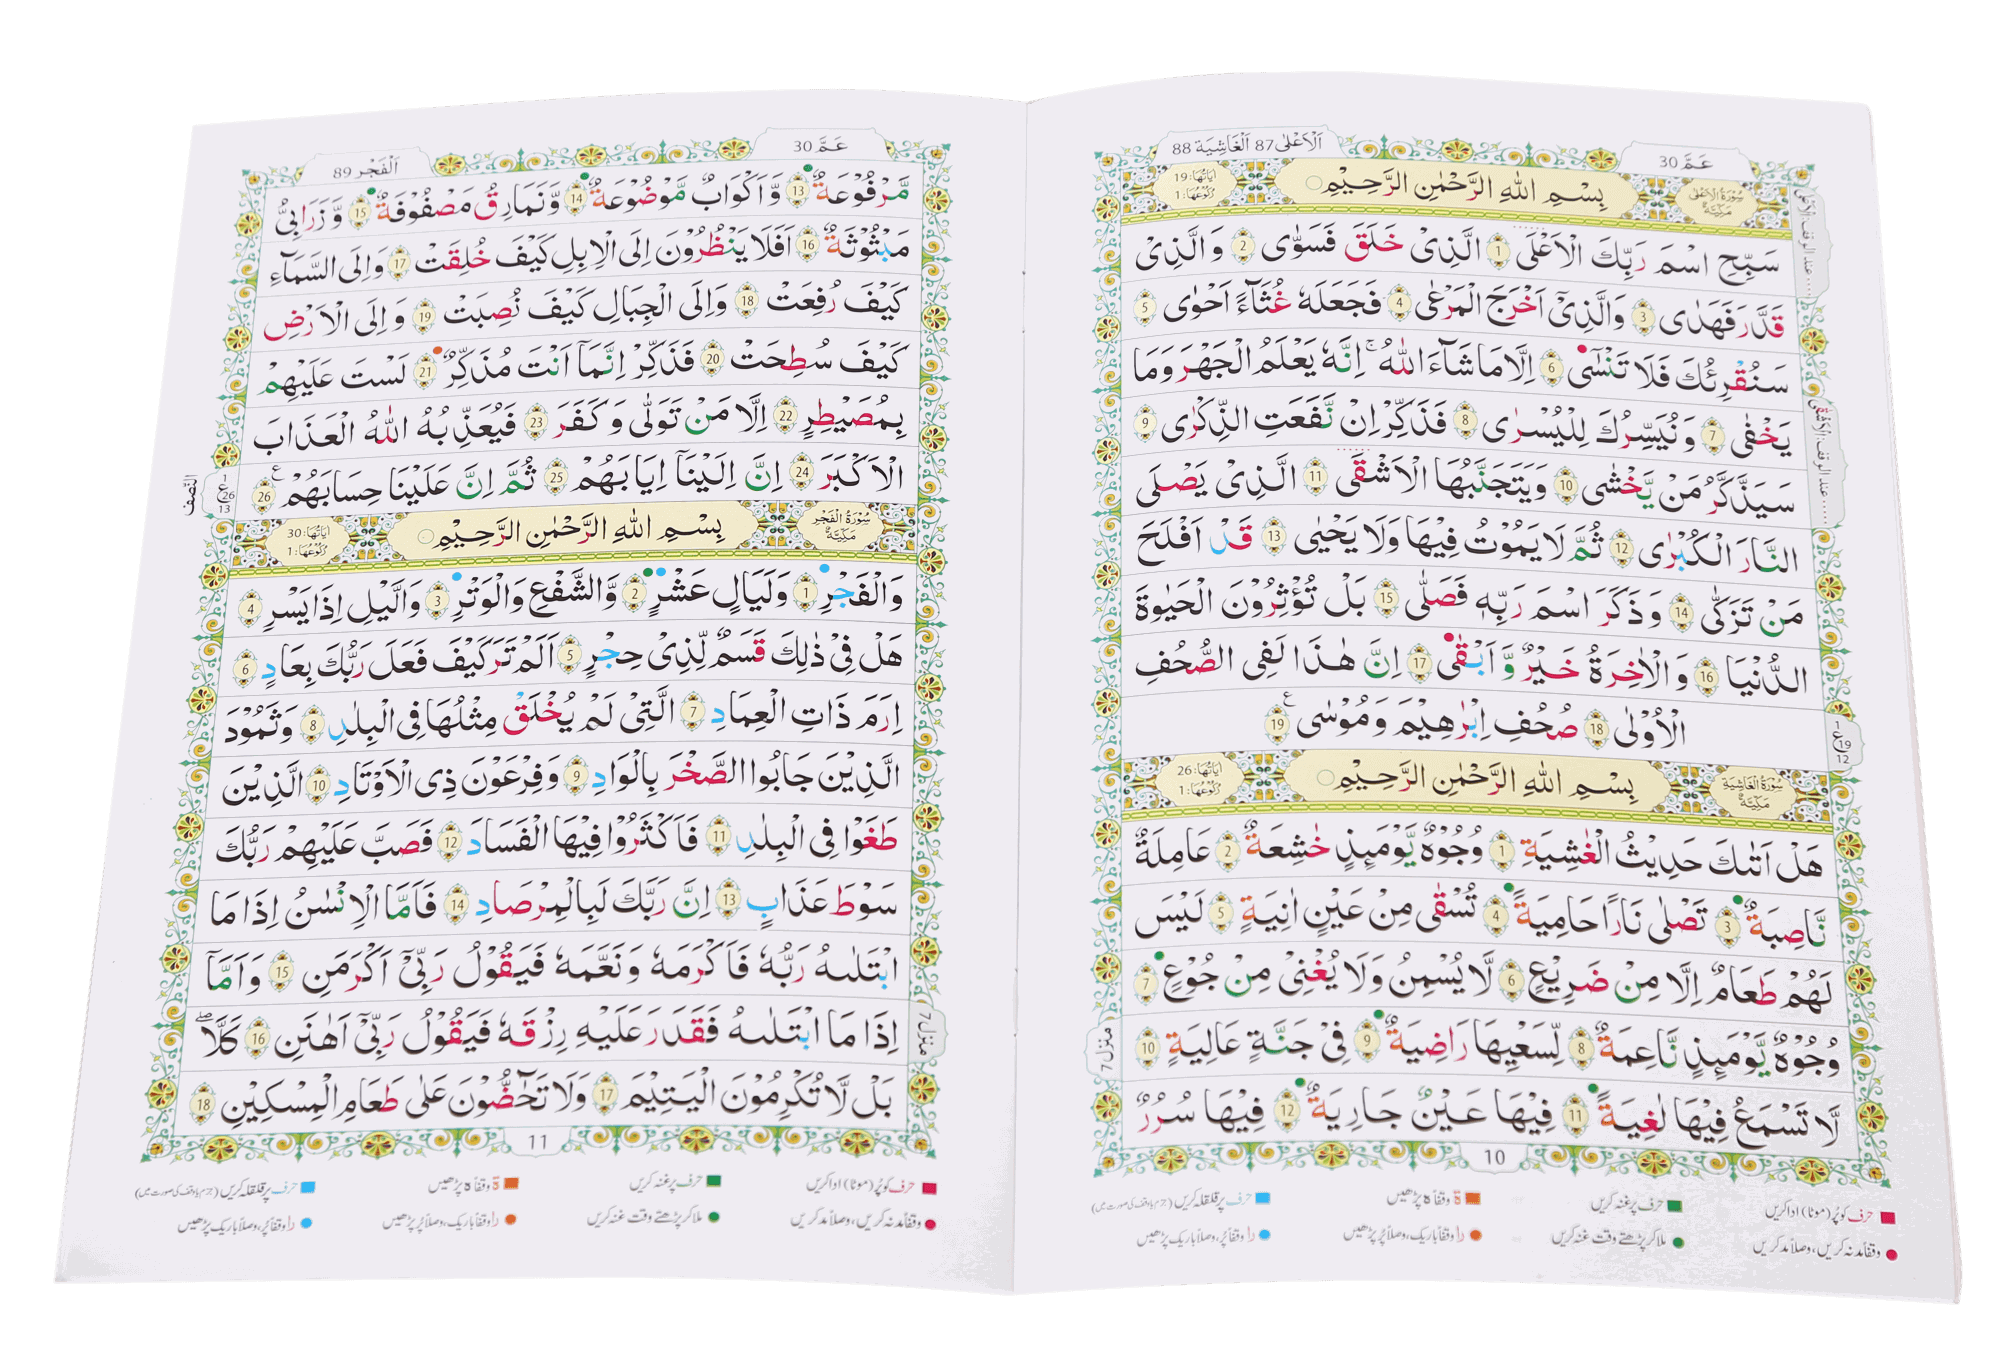 عَمَّ 30
اَلْاَعْلٰى 87 اَلْغَاشِيَة 88
سُوْرَةُ الْاَعْلٰى مَكِّيَّةٌ
بِسْمِ اللّٰهِ الرَّحْمٰنِ الرَّحِيْمِ
اٰيَاتُهَا: 19
رُكُوْعُهَا: 1
سَبِّحِ اسْمَ رَبِّكَ الْاَعْلَى 1 الَّذِىْ خَلَقَ فَسَوّٰى 2 وَ الَّذِىْ
قَدَّرَ فَهَدٰى 3 وَالَّذِىْٓ اَخْرَجَ الْمَرْعٰى 4 فَجَعَلَهٗ غُثَآءً اَحْوٰى 5
سَنُقْرِئُكَ فَلَا تَنْسٰٓى 6 اِلَّا مَا شَآءَ اللّٰهُ ؕ اِنَّهٗ يَعْلَمُ الْجَهْرَ وَمَا
يَخْفٰى 7 وَ نُيَسِّرُكَ لِلْيُسْرٰى 8 فَذَكِّرْ اِنْ نَّفَعَتِ الذِّكْرٰى 9
سَيَذَّكَّرُ مَنْ يَّخْشٰى 10 وَيَتَجَنَّبُهَا الْاَشْقَى 11 الَّذِىْ يَصْلَى
النَّارَ الْكُبْرٰى 12 ثُمَّ لَا يَمُوْتُ فِيْهَا وَلَا يَحْيٰى 13 قَدْ اَفْلَحَ
مَنْ تَزَكّٰى 14 وَ ذَكَرَ اسْمَ رَبِّهٖ فَصَلّٰى 15 بَلْ تُؤْثِرُوْنَ الْحَيٰوةَ
الدُّنْيَا 16 وَ الْاٰخِرَةُ خَيْرٌ وَّ اَبْقٰى 17 اِنَّ هٰذَا لَفِى الصُّحُفِ
الْاُوْلٰى 18 صُحُفِ اِبْرٰهِيْمَ وَ مُوْسٰى 19
1 ع 19 12
سُوْرَةُ الْغَاشِيَةِ مَكِّيَّةٌ
بِسْمِ اللّٰهِ الرَّحْمٰنِ الرَّحِيْمِ
اٰيَاتُهَا: 26
رُكُوْعُهَا: 1
هَلْ اَتٰىكَ حَدِيْثُ الْغٰشِيَةِ 1 وُجُوْهٌ يَّوْمَئِذٍ خٰشِعَةٌ 2 عَامِلَةٌ
نَّاصِبَةٌ 3 تَصْلٰى نَارًا حَامِيَةً 4 تُسْقٰى مِنْ عَيْنٍ اٰنِيَةٍ 5 لَيْسَ
لَهُمْ طَعَامٌ اِلَّا مِنْ ضَرِيْعٍ 6 لَّا يُسْمِنُ وَلَا يُغْنِىْ مِنْ جُوْعٍ 7
وُجُوْهٌ يَّوْمَئِذٍ نَّاعِمَةٌ 8 لِّسَعْيِهَا رَاضِيَةٌ 9 فِىْ جَنَّةٍ عَالِيَةٍ 10
لَّا تَسْمَعُ فِيْهَا لٰغِيَةً 11 فِيْهَا عَيْنٌ جَارِيَةٌ 12 فِيْهَا سُرُرٌ
منزل 7
10
حرف کو پُر (موٹا) ادا کریں
حرف پر غنہ کریں
ة وقفاً ہ پڑھیں
حرف پر قلقلہ کریں (جزم یا وقف کی صورت میں)
وقفاً مد نہ کریں، وصلاً مد کریں
ملا کر پڑھتے وقت غنہ کریں
را وقفاً باریک، وصلاً پُر پڑھیں
را وقفاً پُر، وصلاً باریک پڑھیں
عَمَّ 30
اَلْفَجْر 89
مَّرْفُوْعَةٌ 13 وَّ اَكْوَابٌ مَّوْضُوْعَةٌ 14 وَّ نَمَارِقُ مَصْفُوْفَةٌ 15 وَّ زَرَابِىُّ
مَبْثُوْثَةٌ 16 اَفَلَا يَنْظُرُوْنَ اِلَى الْاِبِلِ كَيْفَ خُلِقَتْ 17 وَ اِلَى السَّمَآءِ
كَيْفَ رُفِعَتْ 18 وَاِلَى الْجِبَالِ كَيْفَ نُصِبَتْ 19 وَ اِلَى الْاَرْضِ
كَيْفَ سُطِحَتْ 20 فَذَكِّرْ اِنَّمَآ اَنْتَ مُذَكِّرٌ 21 لَسْتَ عَلَيْهِمْ
بِمُصَيْطِرٍ 22 اِلَّا مَنْ تَوَلّٰى وَ كَفَرَ 23 فَيُعَذِّبُهُ اللّٰهُ الْعَذَابَ
الْاَكْبَرَ 24 اِنَّ اِلَيْنَآ اِيَابَهُمْ 25 ثُمَّ اِنَّ عَلَيْنَا حِسَابَهُمْ 26
1 ع 26 13
النّصف
سُوْرَةُ الْفَجْرِ مَكِّيَّةٌ
بِسْمِ اللّٰهِ الرَّحْمٰنِ الرَّحِيْمِ
اٰيَاتُهَا: 30
رُكُوْعُهَا: 1
وَالْفَجْرِ 1 وَلَيَالٍ عَشْرٍ 2 وَّالشَّفْعِ وَالْوَتْرِ 3 وَالَّيْلِ اِذَا يَسْرِ 4
هَلْ فِىْ ذٰلِكَ قَسَمٌ لِّذِىْ حِجْرٍ 5 اَلَمْ تَرَ كَيْفَ فَعَلَ رَبُّكَ بِعَادٍ 6
اِرَمَ ذَاتِ الْعِمَادِ 7 الَّتِىْ لَمْ يُخْلَقْ مِثْلُهَا فِى الْبِلَادِ 8 وَ ثَمُوْدَ
الَّذِيْنَ جَابُوا الصَّخْرَ بِالْوَادِ 9 وَ فِرْعَوْنَ ذِى الْاَوْتَادِ 10 الَّذِيْنَ
طَغَوْا فِى الْبِلَادِ 11 فَاَكْثَرُوْا فِيْهَا الْفَسَادَ 12 فَصَبَّ عَلَيْهِمْ رَبُّكَ
سَوْطَ عَذَابٍ 13 اِنَّ رَبَّكَ لَبِالْمِرْصَادِ 14 فَاَمَّا الْاِنْسٰنُ اِذَا مَا
ابْتَلٰىهُ رَبُّهٗ فَاَكْرَمَهٗ وَ نَعَّمَهٗ فَيَقُوْلُ رَبِّىْٓ اَكْرَمَنِ 15 وَ اَمَّآ
اِذَا مَا ابْتَلٰىهُ فَقَدَرَ عَلَيْهِ رِزْقَهٗ فَيَقُوْلُ رَبِّىْٓ اَهَانَنِ 16 كَلَّا
بَلْ لَّا تُكْرِمُوْنَ الْيَتِيْمَ 17 وَلَا تَحٰٓضُّوْنَ عَلٰى طَعَامِ الْمِسْكِيْنِ 18
منزل 7
11
حرف کو پُر (موٹا) ادا کریں
حرف پر غنہ کریں
ة وقفاً ہ پڑھیں
حرف پر قلقلہ کریں (جزم یا وقف کی صورت میں)
وقفاً مد نہ کریں، وصلاً مد کریں
ملا کر پڑھتے وقت غنہ کریں
را وقفاً باریک، وصلاً پُر پڑھیں
را وقفاً پُر، وصلاً باریک پڑھیں